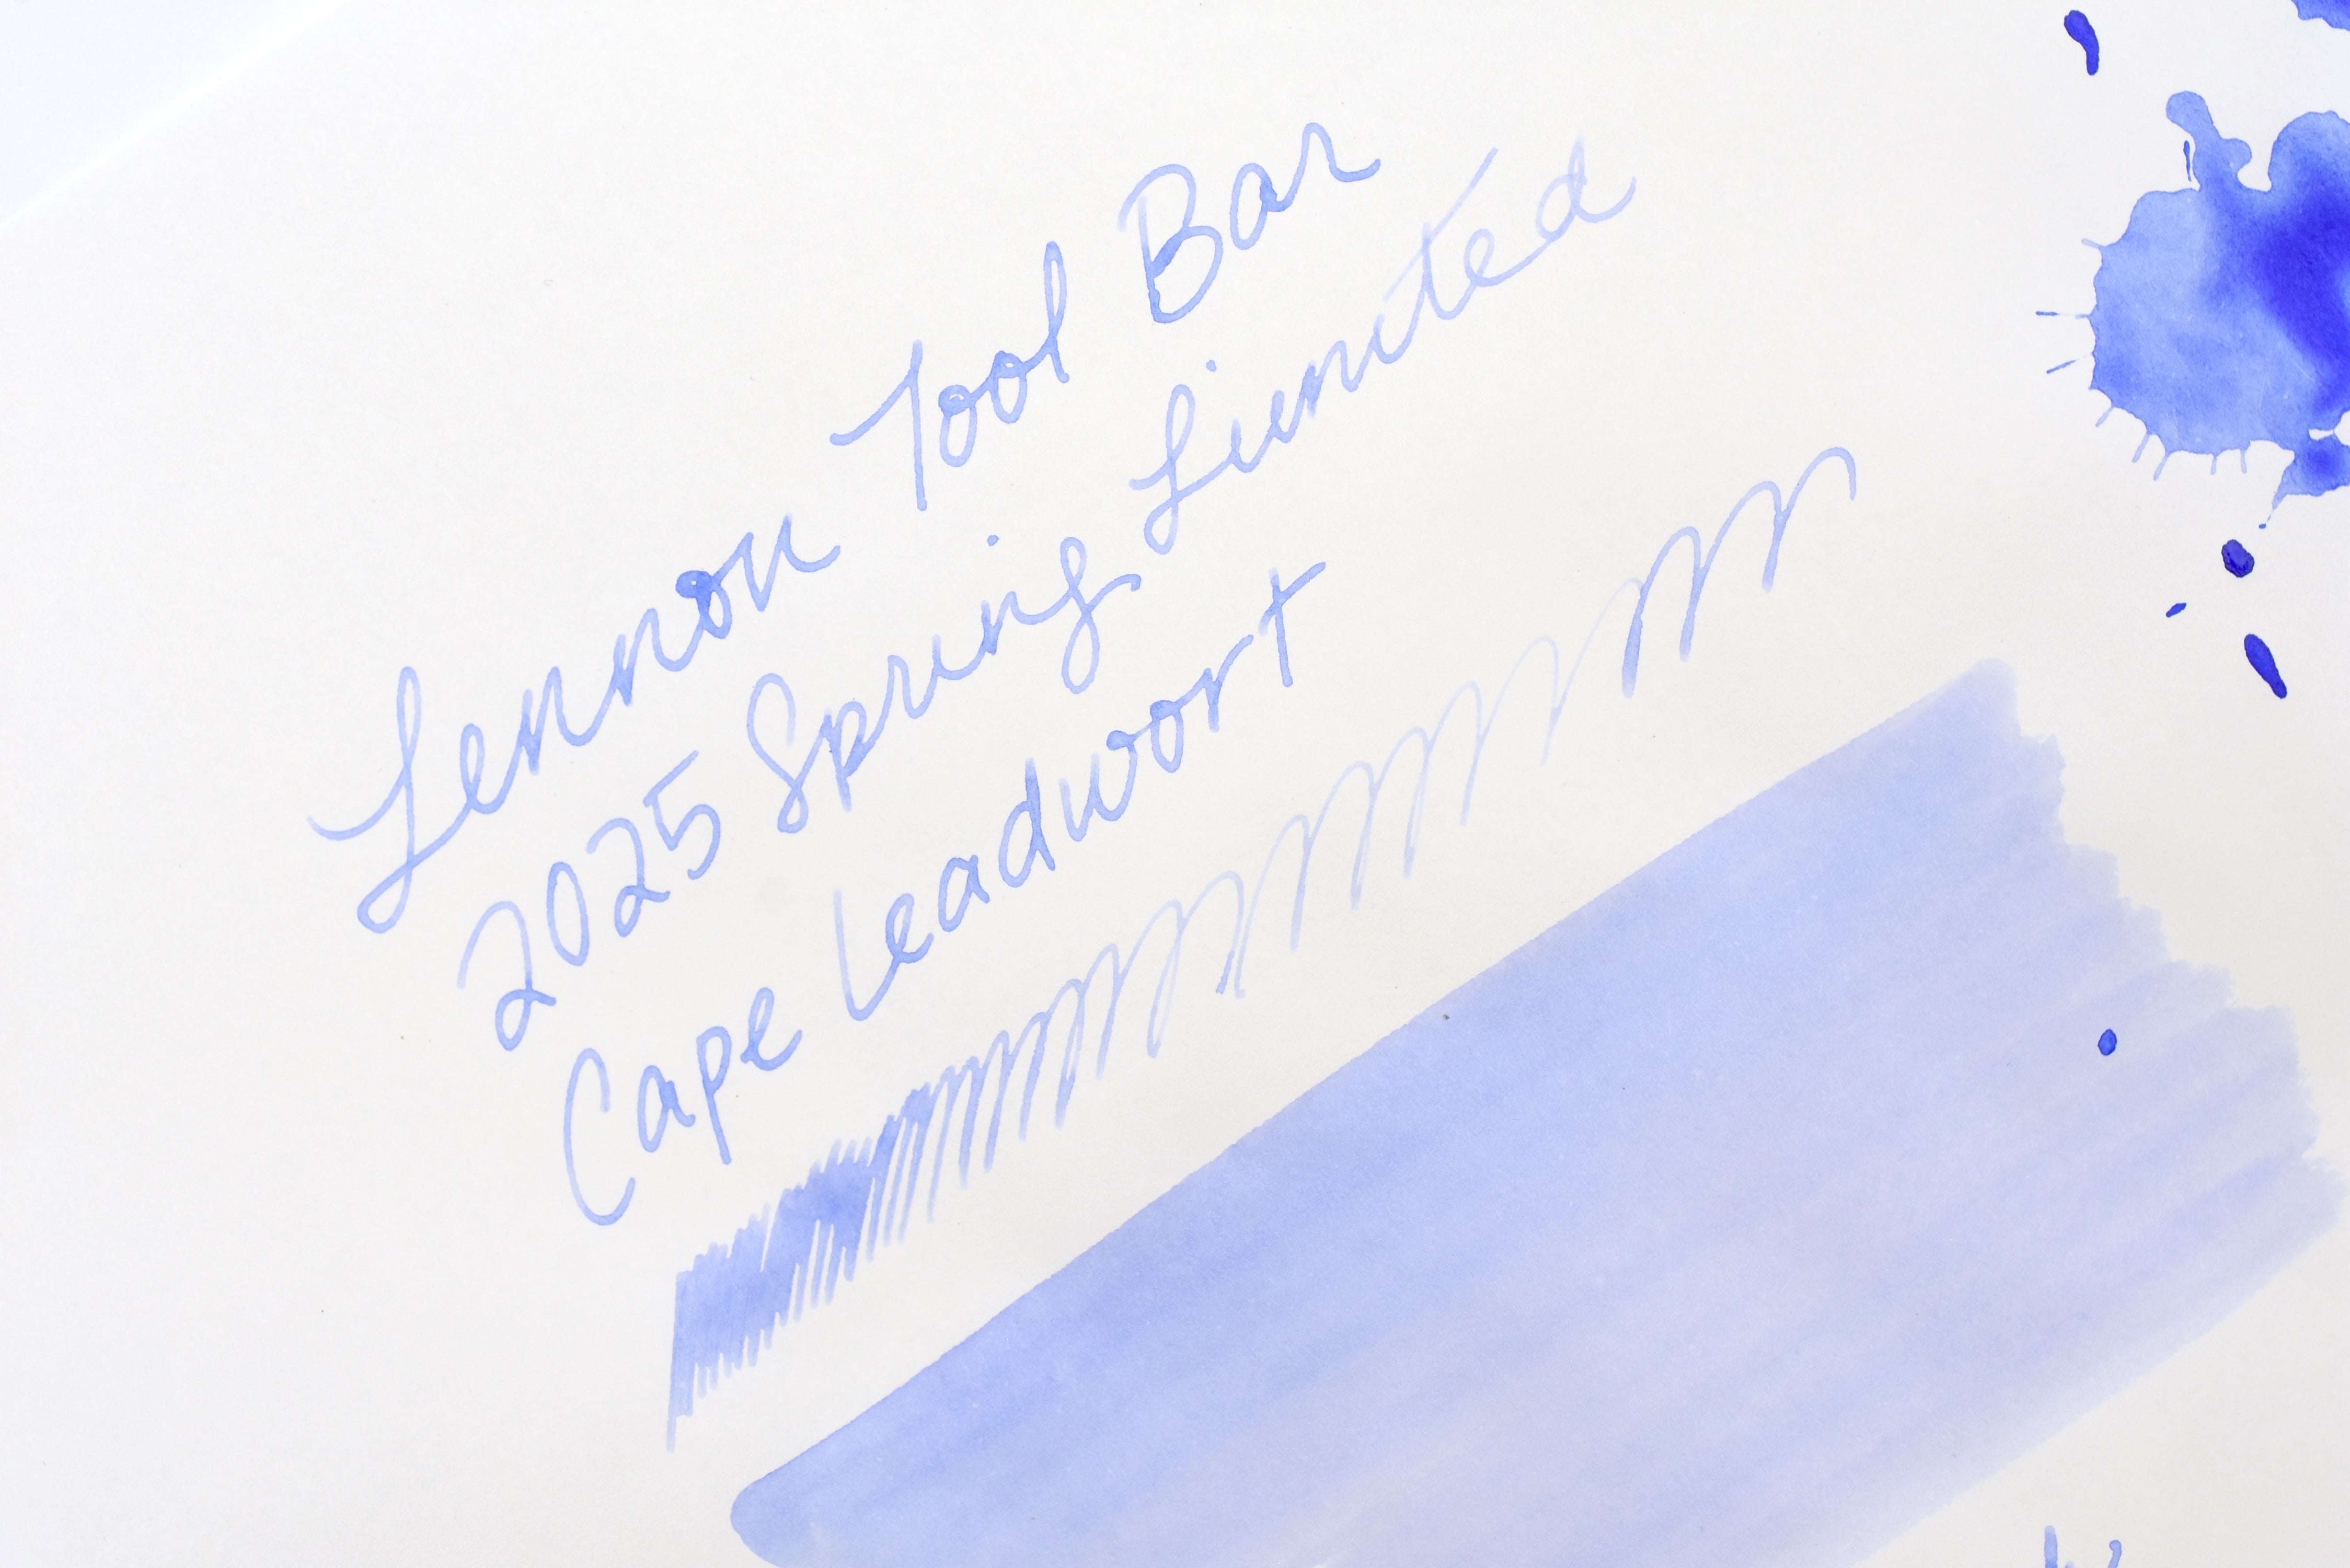 Lennon Tool Bar
2025 Spring Limited
Cape Leadwort